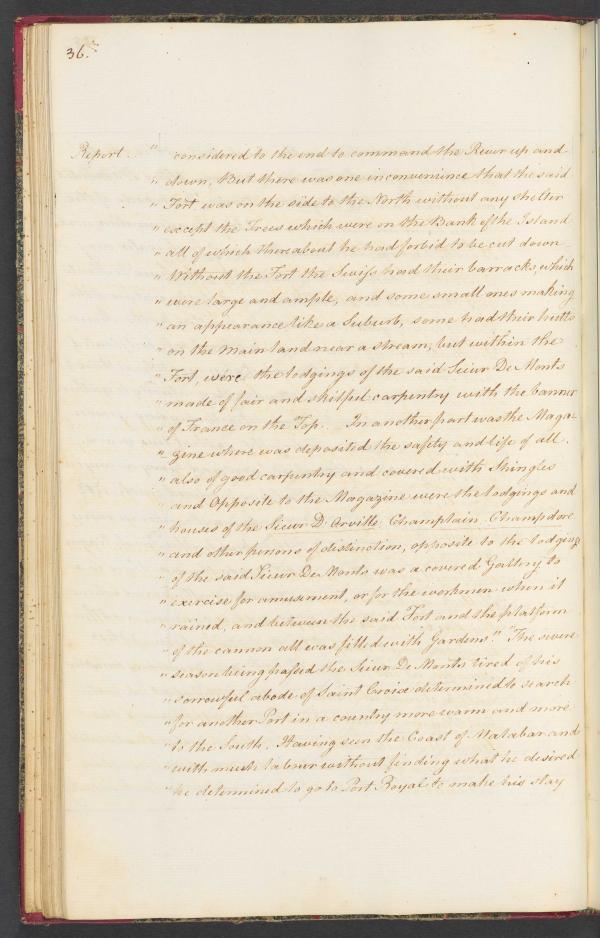 36.
Report. " considered to the end to command the River up and
" down, But there was one inconvenience that the said
" Fort was on the side to the North without any shelter
" except the Trees which were on the Bank of the Island
" all of which thereabout he had forbid to be cut down
" Without the Fort the Swiss had their barracks, which
" were large and ample, and some small ones making
" an appearance like a Suburb, some had their hutts
" on the main land near a stream, but within the
" Fort, were the lodgings of the said Sieur De Monts
" made of fair and skilful carpentry with the banner
" of France on the Top. In another part was the Maga-
" zine where was deposited the safety and life of all.
" also of good carpentry and covered with Shingles
" and Opposite to the Magazine were the lodgings and
" houses of the Sieur D'Orville, Champlain, Champdore
" and other persons of distinction, opposite to the lodging
" of the said Sieur De Monts was a covered Gallery to
" exercise for amusement, or for the workmen when it
" rained, and between the said Fort and the platform
" of the cannon all was filled with Gardens" "The severe
" season being passed the Sieur De Monts tired of his
" sorrowful abode of Saint Croix determined to search
" for another Port in a country more warm and more
" to the South. Having seen the Coast of Malabar and
" with much labour without finding what he desired
" he determined to go to Port Royal to make his stay